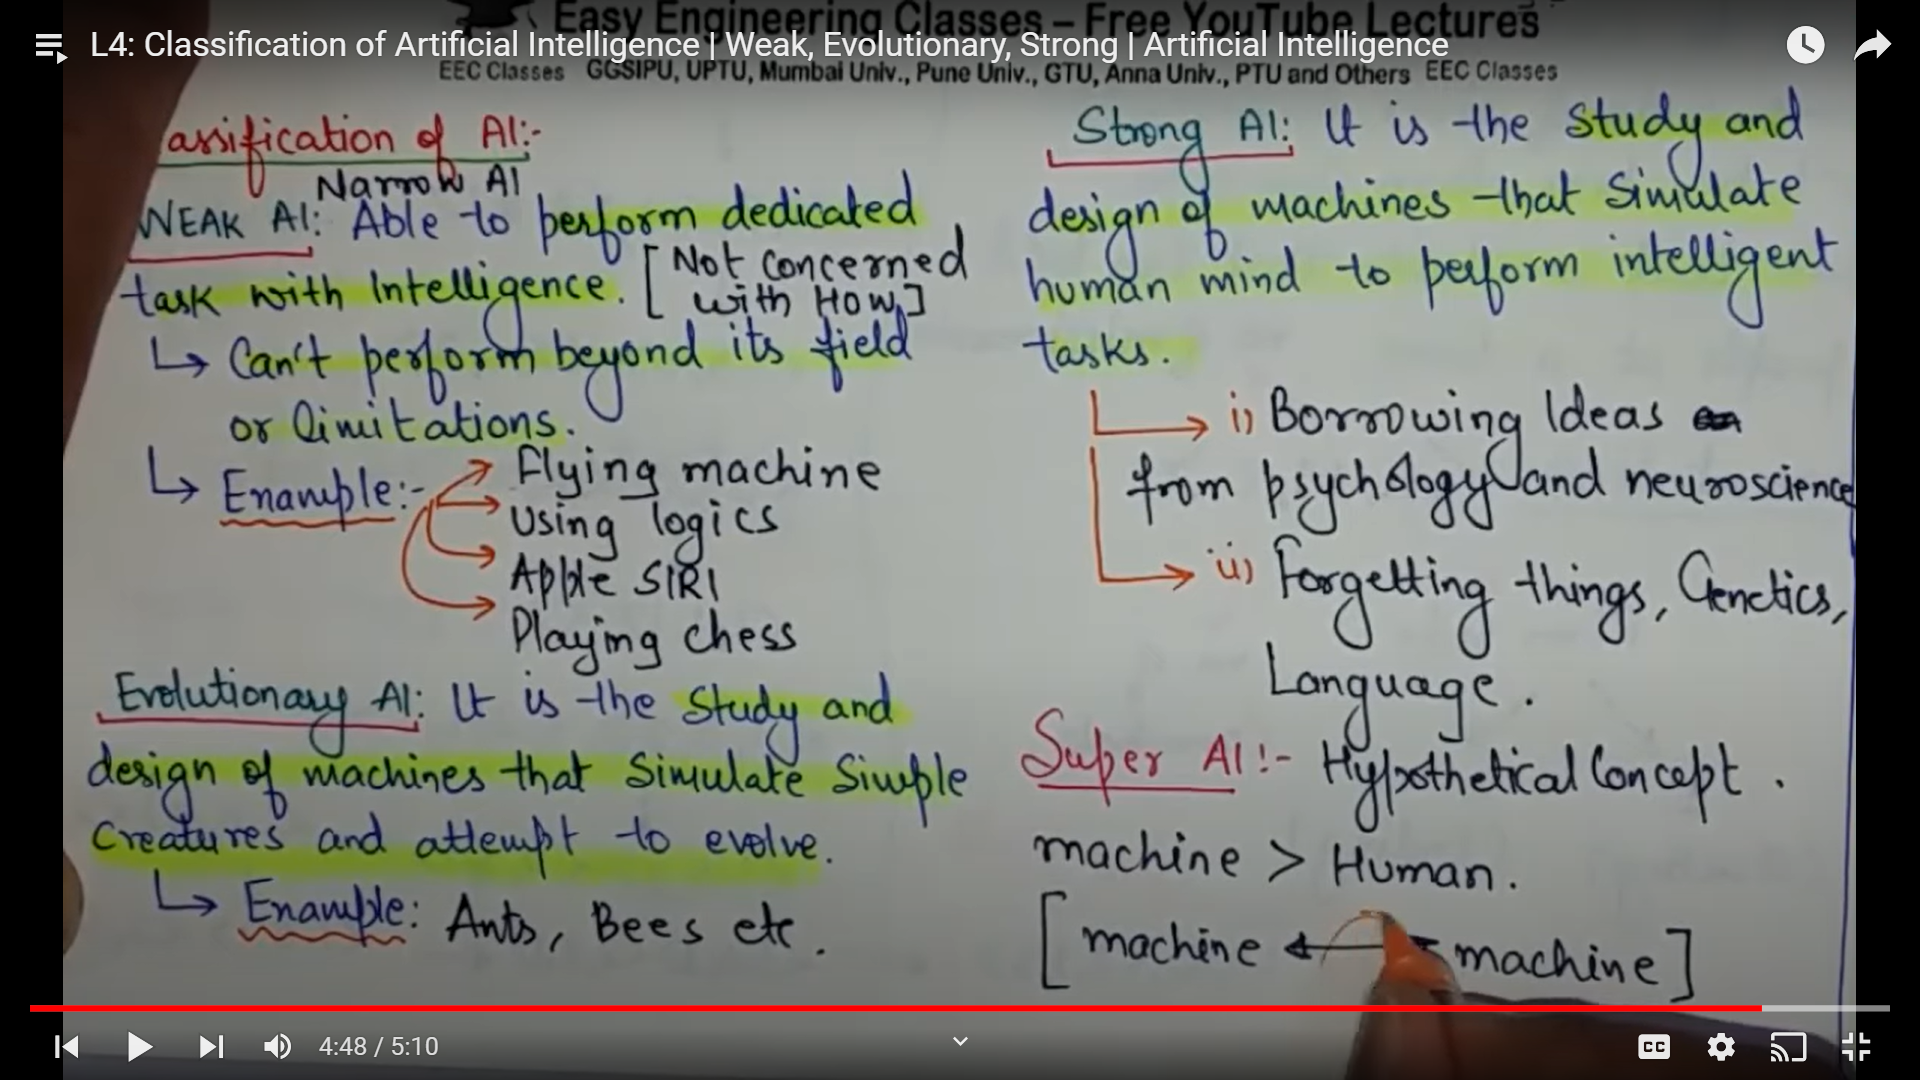 Easy Engineering Classes – Free YouTube Lectures
L4: Classification of Artificial Intelligence | Weak, Evolutionary, Strong | Artificial Intelligence
EEC Classes GGSIPU, UPTU, Mumbai Univ., Pune Univ., GTU, Anna Univ., PTU and Others EEC Classes
assification of AI:-
Narrow AI
WEAK AI: Able to perform dedicated
task with Intelligence. [Not concerned
with How]
↳ Can't perform beyond its field
or limitations.
↳ Example:- Flying machine
Using logics
Apple SIRI
Playing chess
Evolutionary AI: It is the study and
design of machines that simulate simple
creatures and attempt to evolve.
↳ Example: Ants, Bees etc.
Strong AI: It is the study and
design of machines that simulate
human mind to perform intelligent
tasks.
i) Borrowing Ideas
from psychology and neuroscience
ii) Forgetting things, Genetics,
Language.
Super AI:- Hypothetical Concept.
machine > Human.
[machine ← machine]
4:48 / 5:10
CC